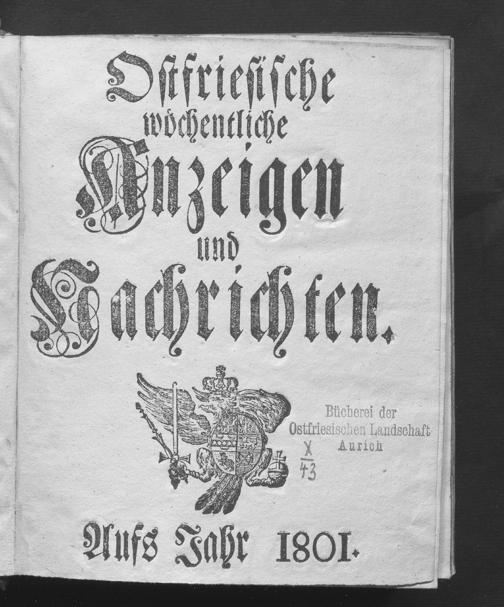 Ostfriesische
wöchentliche
Anzeigen
und
Nachrichten.
Bücherei der
Ostfriesischen Landschaft
Aurich
X
43
Aufs Jahr 1801.